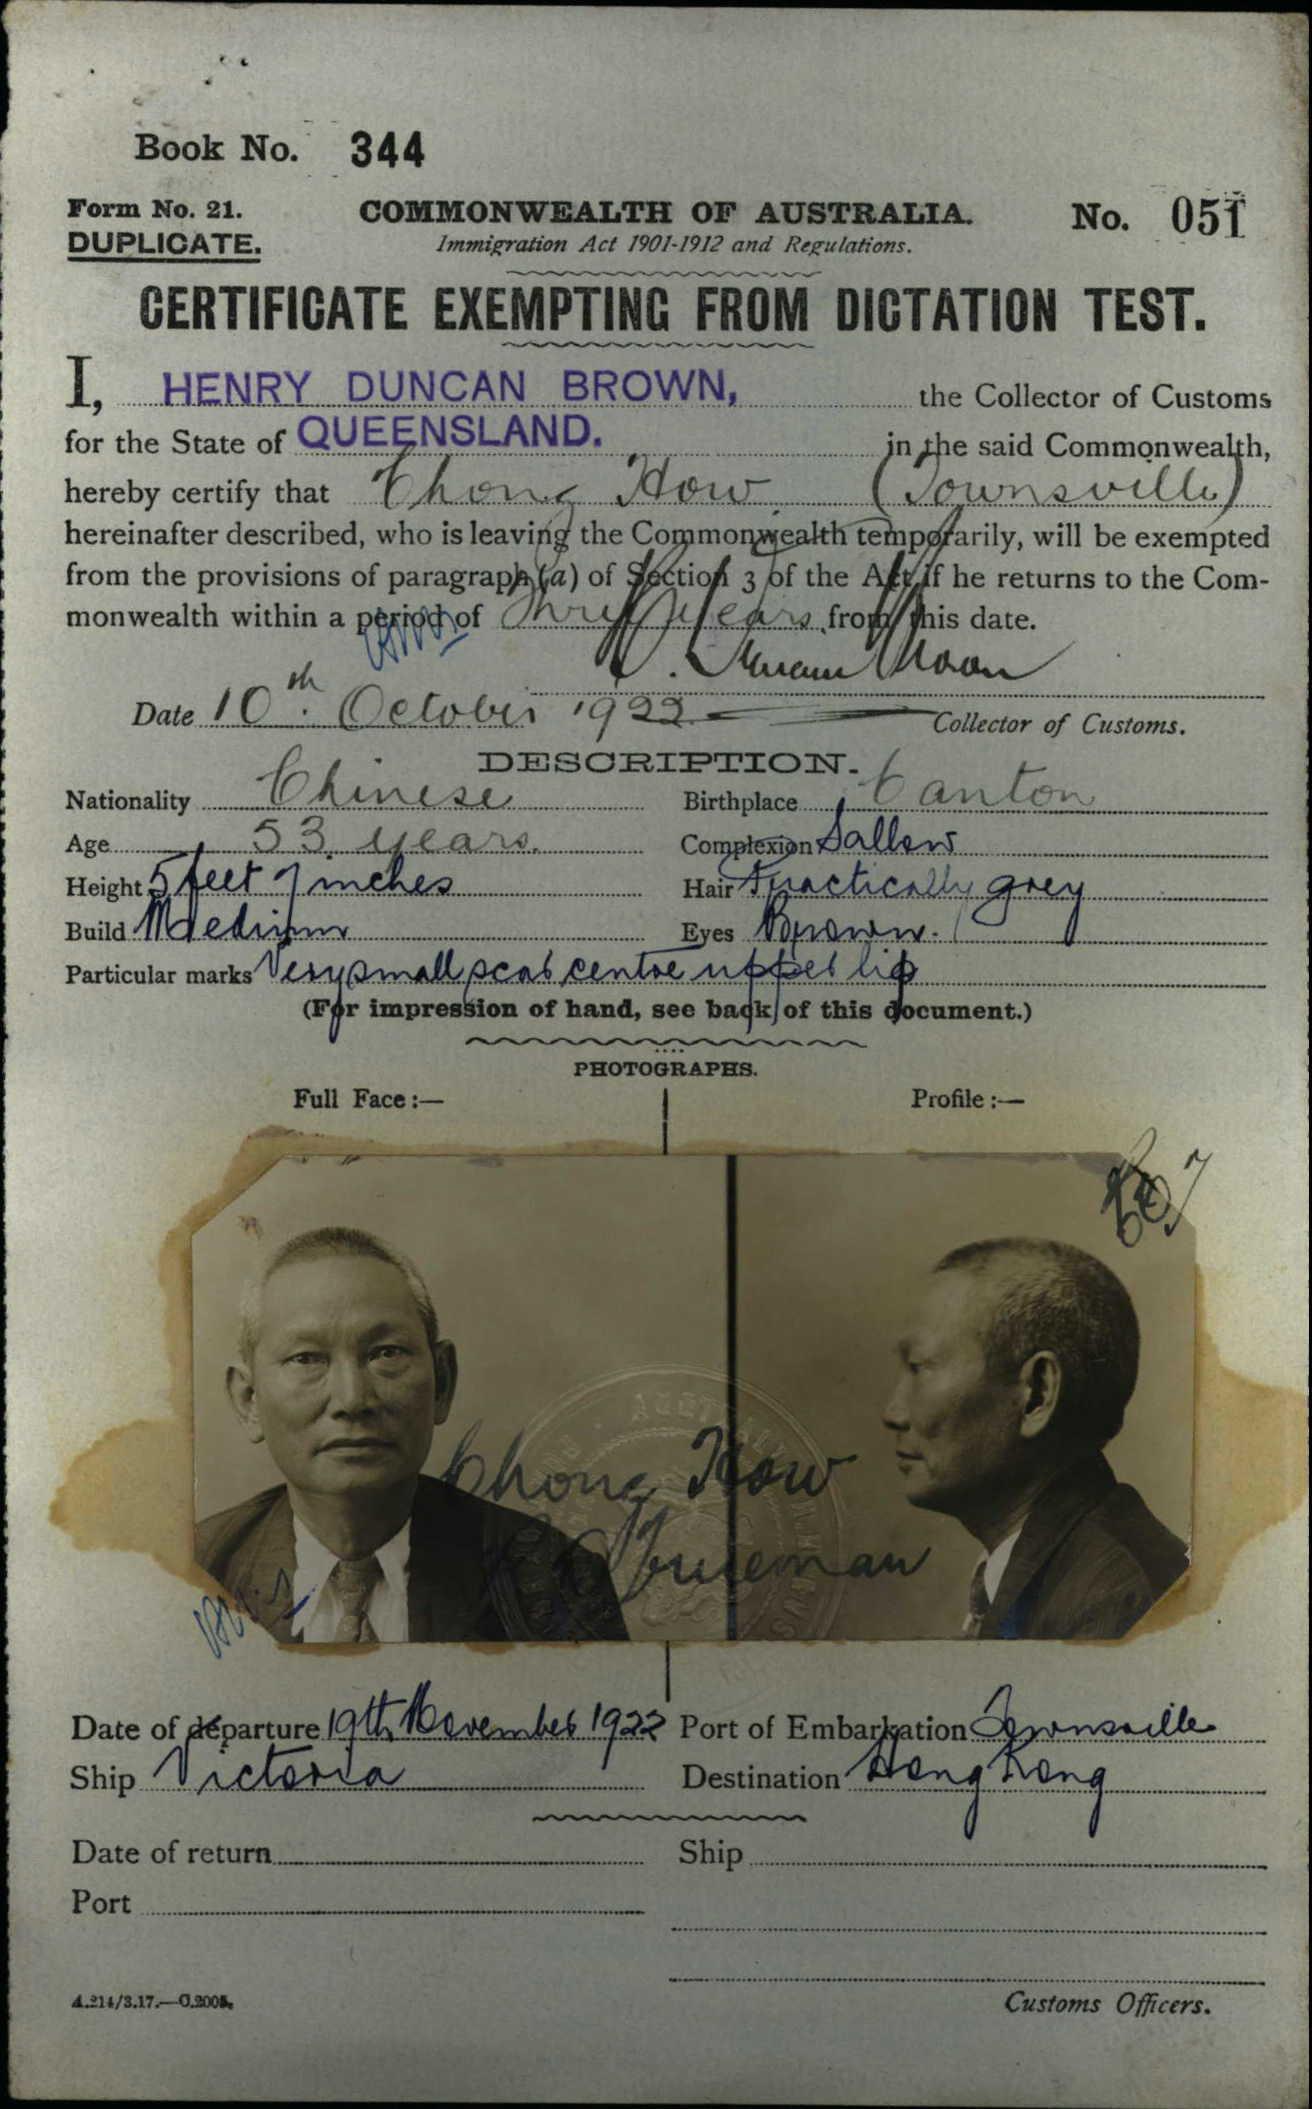 Book No. 344
Form No. 21. COMMONWEALTH OF AUSTRALIA. No. 051
DUPLICATE. Immigration Act 1901-1912 and Regulations.
CERTIFICATE EXEMPTING FROM DICTATION TEST.
I, HENRY DUNCAN BROWN, the Collector of Customs
for the State of QUEENSLAND. in the said Commonwealth,
hereby certify that Chong How (Townsville)
hereinafter described, who is leaving the Commonwealth temporarily, will be exempted
from the provisions of paragraph (a) of Section 3 of the Act if he returns to the Com-
monwealth within a period of Three years from this date.
Date 10th October 1922 Collector of Customs.
DESCRIPTION.
Nationality Chinese Birthplace Canton
Age 53 years. Complexion Sallow
Height 5 feet 7 inches Hair Practically grey
Build Medium Eyes Brown.
Particular marks Very small scar centre upper lip
(For impression of hand, see back of this document.)
PHOTOGRAPHS.
Full Face :— Profile :—
Chong How
Date of departure 19th November 1922 Port of Embarkation Townsville
Ship Victoria Destination Hong Kong
Date of return Ship
Port
A.214/3.17.—C.2005. Customs Officers.